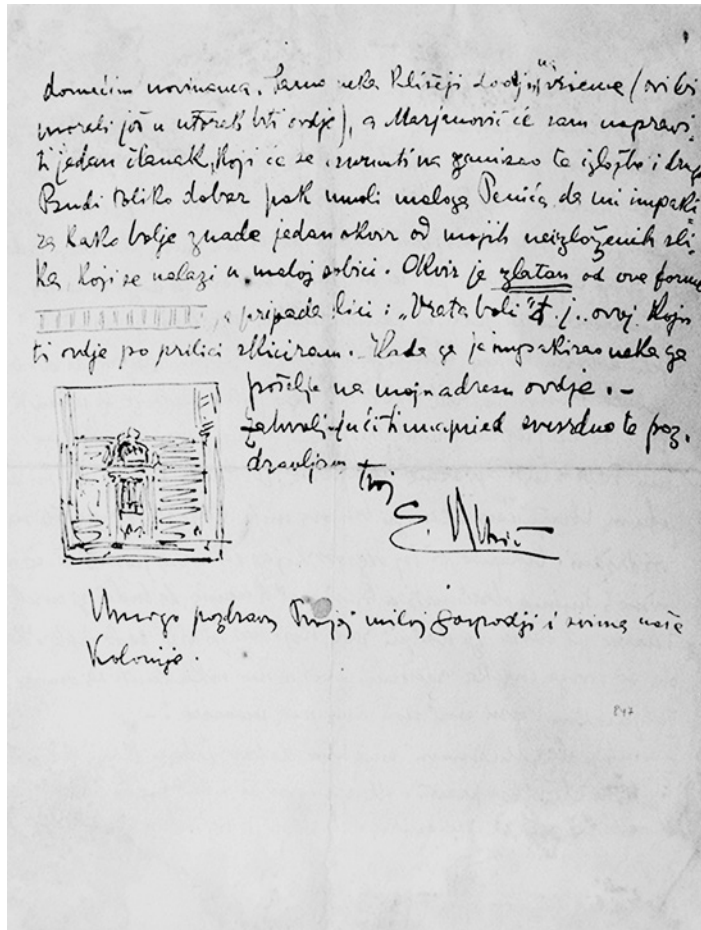 domaćim novinama. Samo neka klišeji dodju na vrieme (oni bi
morali još u utorak biti ovdje), a Marjanović će sam napravi-
ti jedan članak, koji će se osvrnuti na zamisao te izložbe i drugo
Budi toliko dobar pak umoli maloga Penića da mi impaki-
ra kako bolje znade jedan okvir od mojih neizloženih sli-
ka, koji se nalazi u maloj sobici. Okvir je zlatan od ove forme
a pripada slici i „Vrata boli" t. j. ovaj koju
ti ovdje po prilici skiciram. - Kada ga je impakirao neka ga
pošalje na moju adresu ovdje. -
zahvaljujući ti unapried svesrdno te poz-
dravljam tvoj
E.
Mnogo pozdrava Tvojoj miloj gospodji i svima naše
Kolonije.
847